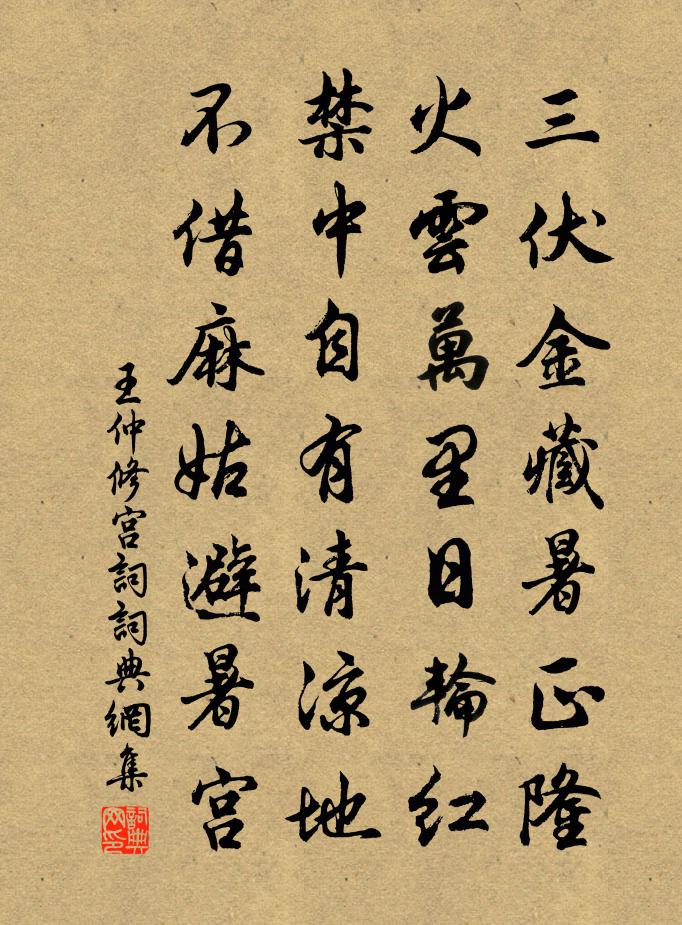 三伏金藏暑正隆
火雲萬里日輪紅
禁中自有清涼地
不借麻姑避暑宮
王仲修宮詞詞典網集
詞典网印